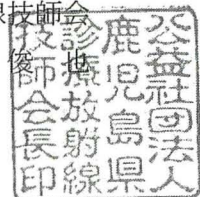 線技師会
俊 也
公益社団法人
鹿児島県
診療放射線
技師会長印